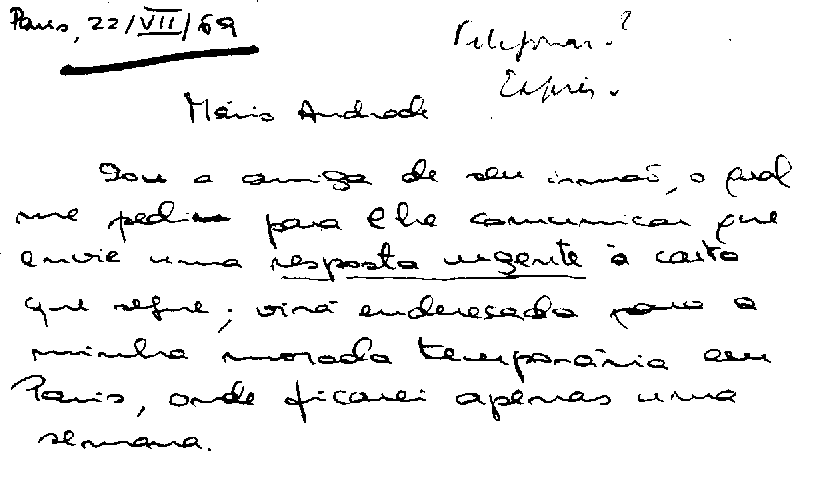 Paris, 22/VII/69
Telefonar?
Expres.
Mário Andrade
Sou a amiga de seu irmão, o qual
me pediu para lhe comunicar que
envie uma resposta urgente à carta
que segue; virá enderesada para a
minha morada temporária em
Paris, onde ficarei apenas uma
semana.